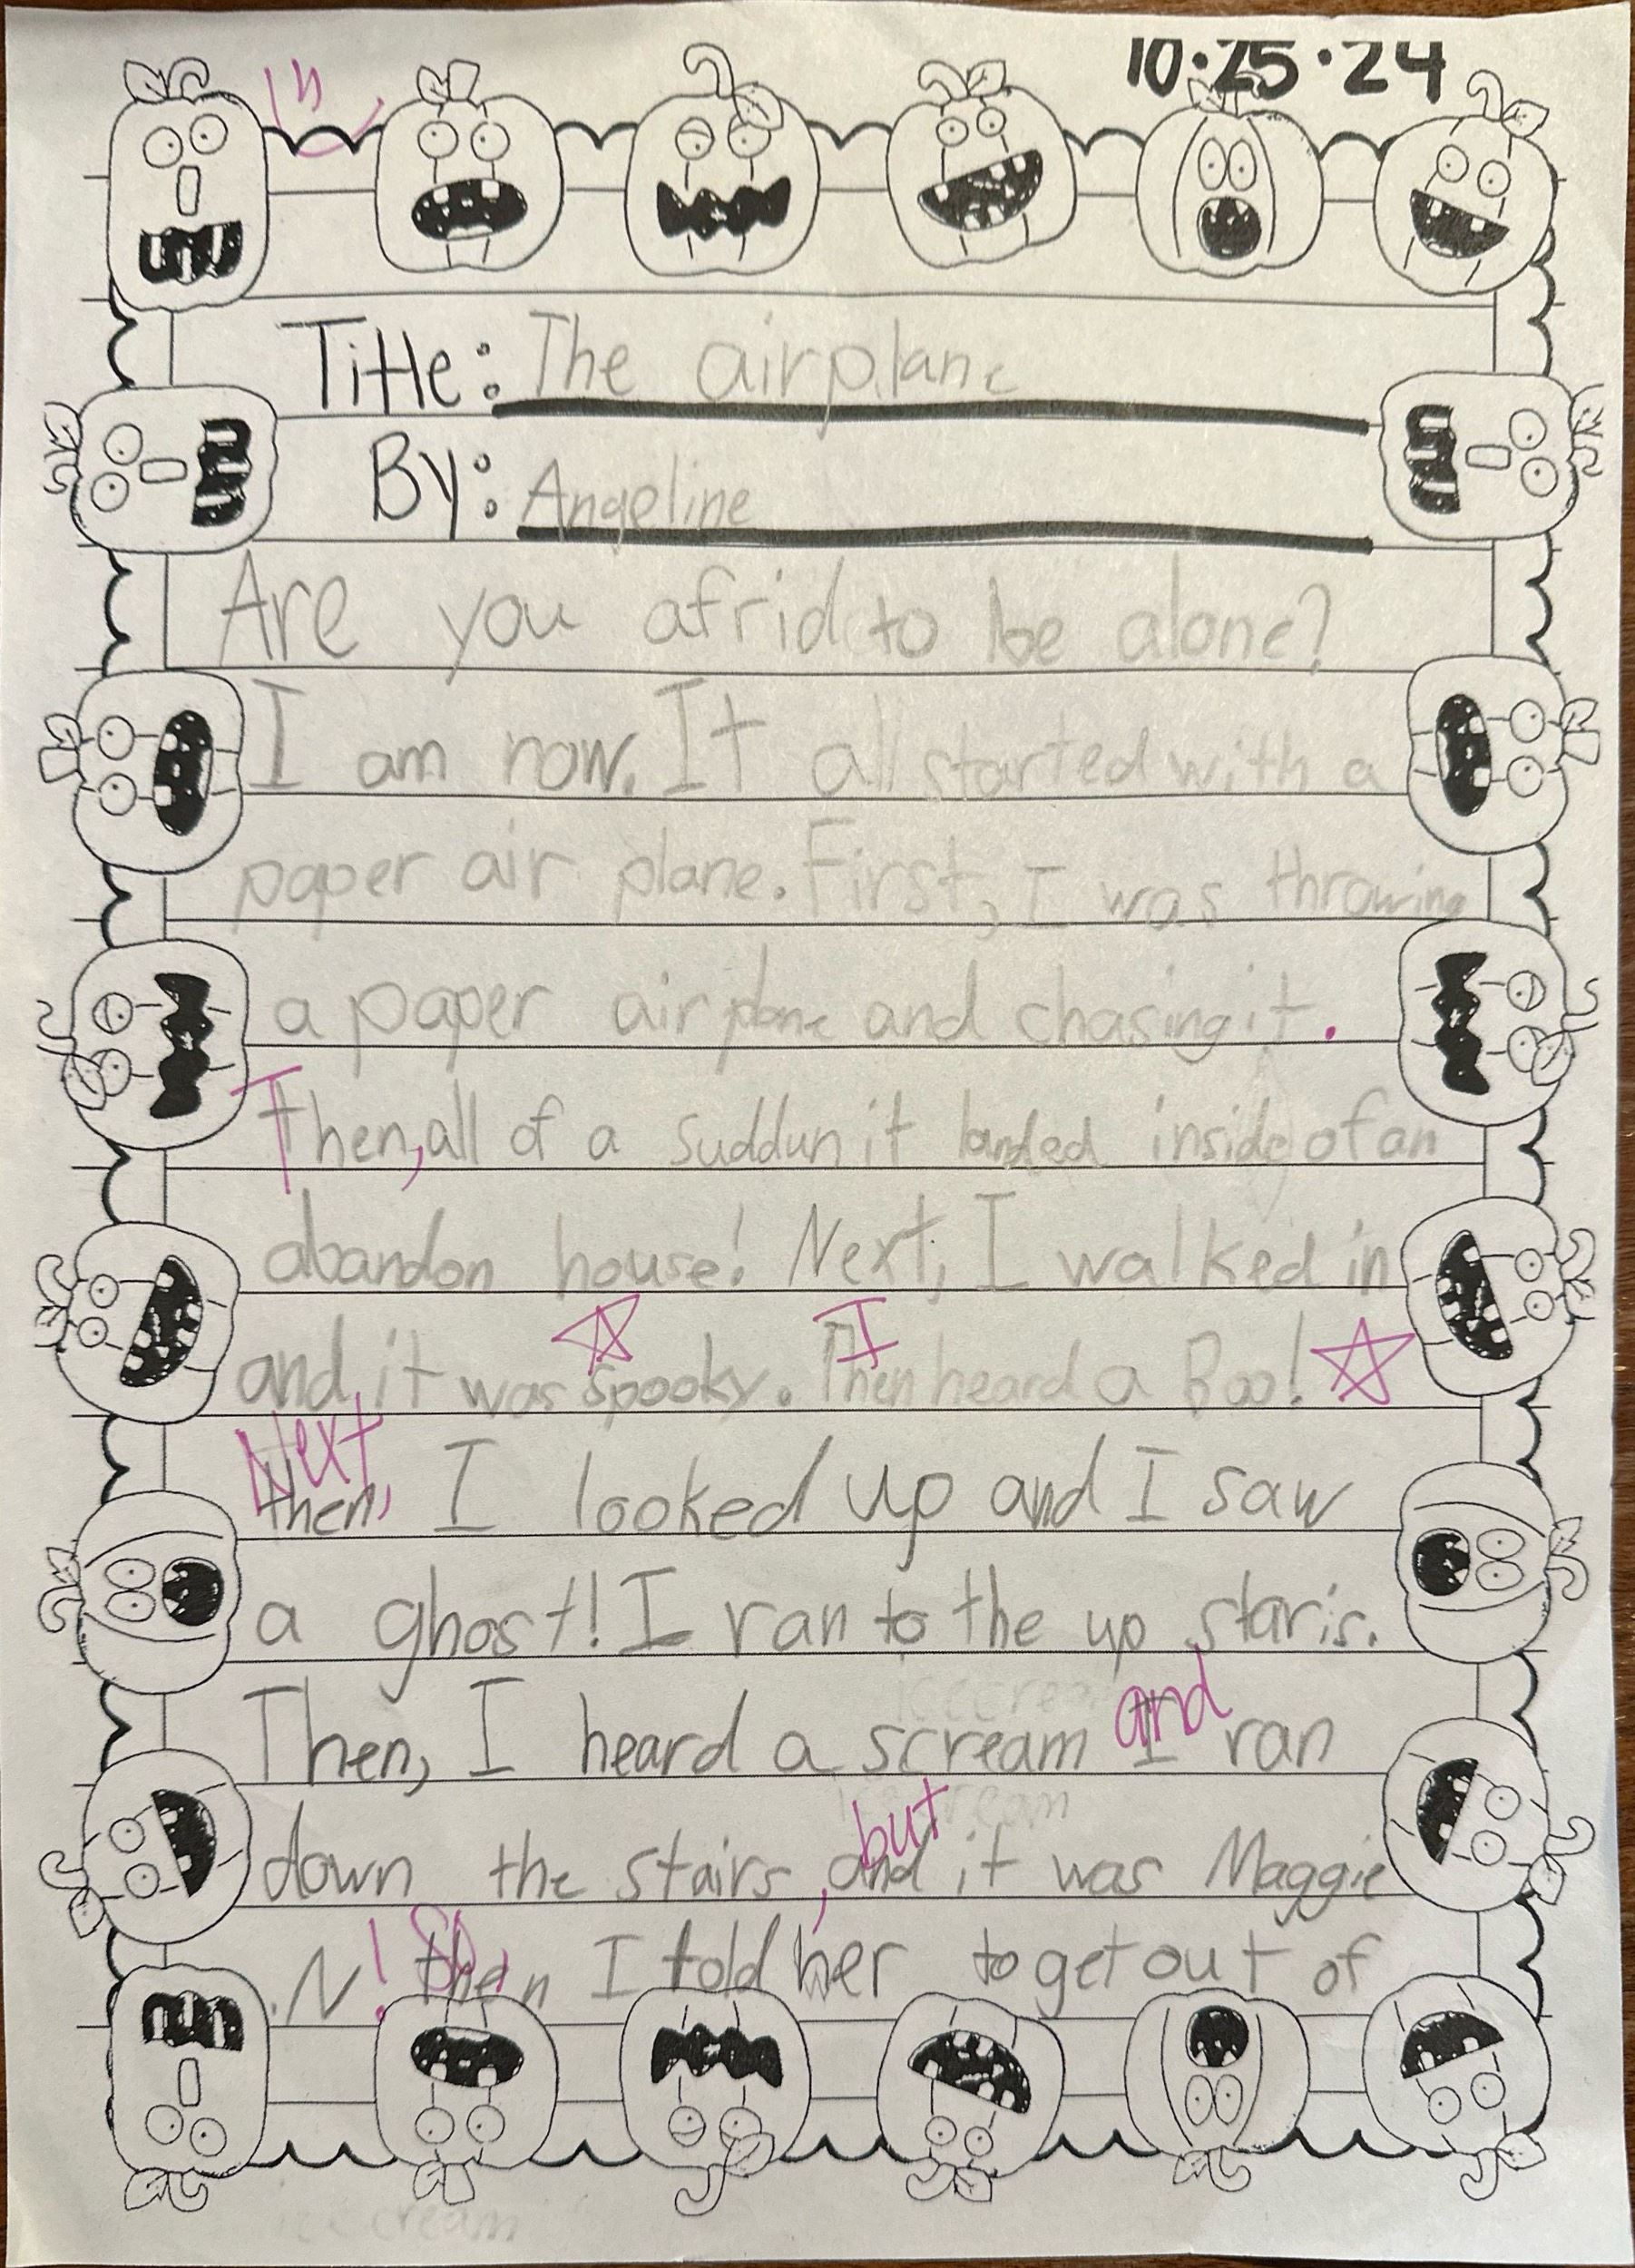 10.25.24
Title: The airplane
By: Angeline
Are you afrid to be alone?
I am now. It all started with a
paper air plane. First, I was throwing
a paper air plane and chasing it.
Then, all of a suddun it landed inside of an
abandon house! Next, I walked in
I
and it was spooky. Then heard a Boo!
Next
then, I looked up and I saw
a ghost! I ran to the up staris.
icecream
and
Then, I heard a scream I ran
but
down the stairs, and it was Maggie
! So,
.N then I told her to get out of
ice cream